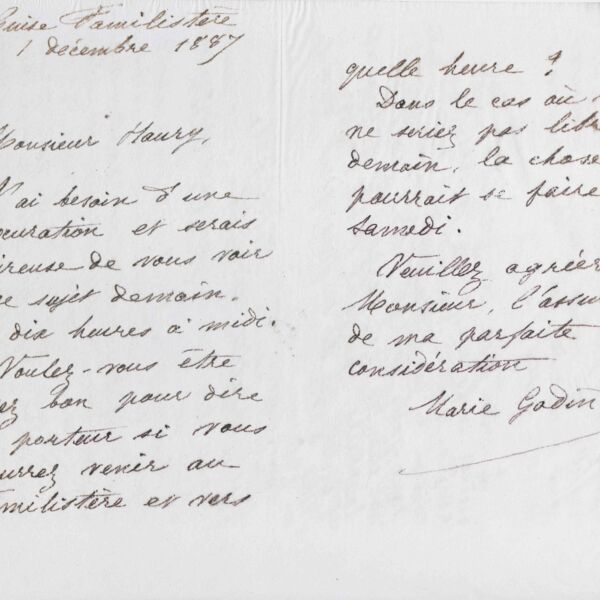 Guise Familistère
1 décembre 1887
Monsieur Haury,
J'ai besoin d'une
curation et serais
ireuse de vous voir
ce sujet demain.
dix heures à midi.
Voulez-vous être
ez bon pour dire
porteur si vous
urrez venir au
milistère et vers
quelle heure ?
Dans le cas où
ne seriez pas libr
demain, la chose
pourrait se faire
samedi.
Veuillez agréer
Monsieur, l'assu
de ma parfaite
considération
Marie Godin